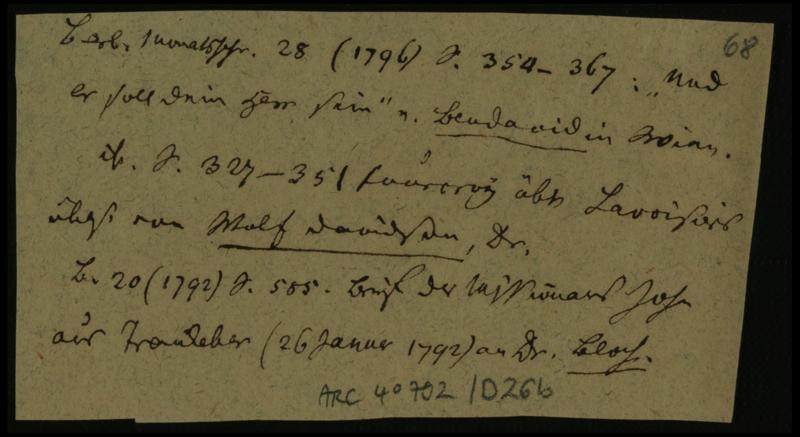 68
Berl. Monatsschr. 28 (1796) S. 354–367 : „Und
er soll dein Herr sein“ v. Bendavid in Wien.
ib. S. 327–351 Fourcroy über Lavoisier
übers. von Wolf Davidson, Dr.
B. 20 (1792) S. 585. Brief des Missionars John
aus Trankebar (26 Januar 1792) an Dr. Bloch.
ARC 4° 792 / D26b